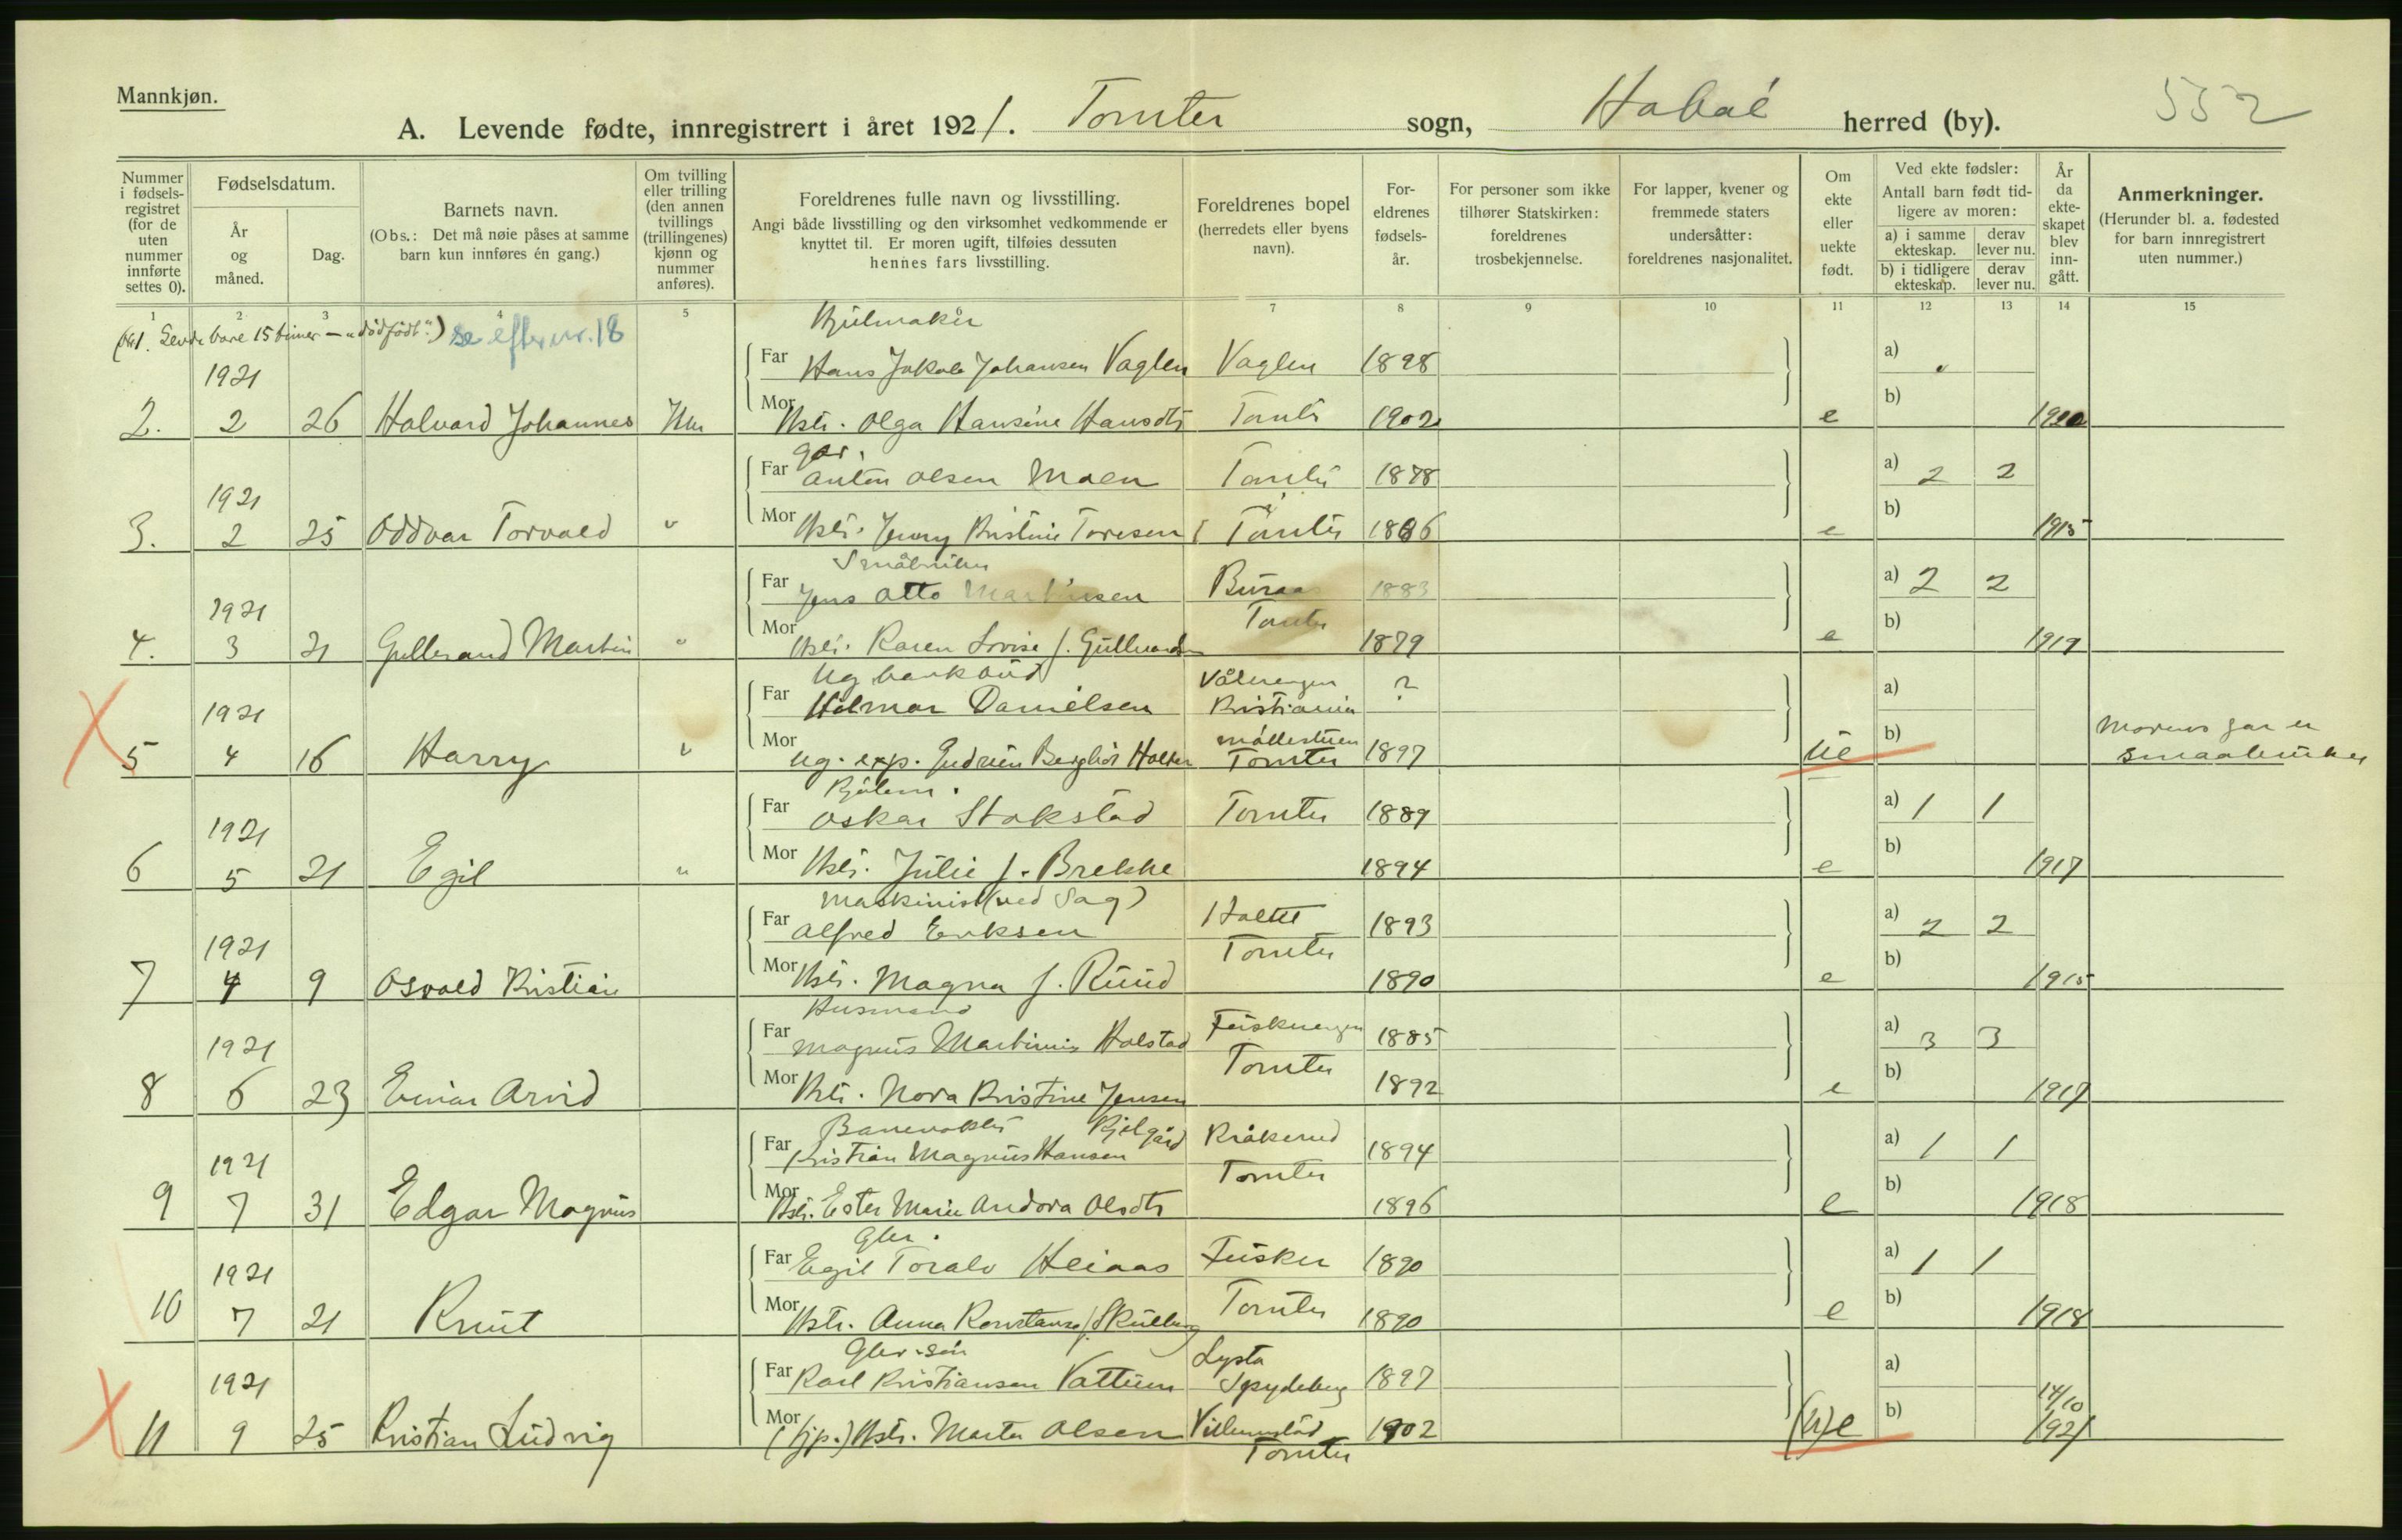 Mannkjøn.
552
A. Levende fødte, innregistrert i året 1921. Tomter sogn, Hobøl herred (by).
Nummer i fødsels-registret (for de uten nummer innførte settes 0).
Fødselsdatum.
År og måned.
Dag.
Barnets navn.
(Obs.: Det må nøie påses at samme barn kun innføres én gang.)
Om tvilling eller trilling (den annen tvillings (trillingenes) kjønn og nummer anføres).
Foreldrenes fulle navn og livsstilling.
Angi både livsstilling og den virksomhet vedkommende er knyttet til. Er moren ugift, tilføies dessuten hennes fars livsstilling.
Foreldrenes bopel (herredets eller byens navn).
For-eldrenes fødsels-år.
For personer som ikke tilhører Statskirken: foreldrenes trosbekjennelse.
For lapper, kvener og fremmede staters undersåtter: foreldrenes nasjonalitet.
Om ekte eller uekte født.
Ved ekte fødsler: Antall barn født tid-ligere av moren:
a) i samme ekteskap. derav lever nu.
b) i tidligere ekteskap. derav lever nu.
År da ekte-skapet blev inn-gått.
Anmerkninger.
(Herunder bl. a. fødested for barn innregistrert uten nummer.)
1 2 3 4 5 7 8 9 10 11 12 13 14 15
(№1. Levde bare 15 timer — "dødfødt".) se efter nr. 18
Hjulmaker
1921 Far Hans Jakob Johansen Vaglen Vaglen 1898 a)
2. 2 26 Halvard Johannes Mor Hstr. Olga Hansine Hansdtr Tomter 1902 e b) 1920
Far Anton Olsen Moen Tomter 1878 a) 2 2
1921
3. 2 25 Oddvar Torvald " Mor Hstr. Jenny Kristine Toresen Tomter 1886 e b) 1915
Småbruker
Far Jens Otto Martinsen Buraas 1883 a) 2 2
1921 Tomter
4. 3 21 Gullerand Martin " Mor Hstr. Karen Lovise f. 1879 e b) 1917
Ug. bankbud Vålerengen
1921 Far Hilmar Danielsen Kristiania ? a)
5 4 16 Harry " Mor Ug. exp. Gudrun Bergliot Holter Tomter 1897 ue b) Morens far er
smaabruker
Far Oskar Stokstad Tomter 1889 a) 1 1
1921
6 5 21 Egil " Mor Hstr. Julie f. Brekke 1894 e b) 1917
Maskinist (ved Sag)
Far Alfred Eriksen Holtet 1893 a) 2 2
1921 Tomter
7 4 9 Osvald Kristian Mor Hstr. Magna f. Ruud 1890 e b) 1915
Husmand
1921 Far Magnus Martinius Holstad 1885 a) 3 3
Tomter
8 6 23 Einar Arvid Mor Hstr. Nora Kristine Jensen 1892 e b) 1917
Banevokter
1921 Far Kristian Magnus Hansen Kråkerud 1894 a) 1 1
Tomter
9 7 31 Edgar Magnus Mor Hstr. Ester Marie Andora Olsdtr 1896 e b) 1918
Gbr.
1921 Far Egil Toralv Heiaas Fusker 1890 a) 1 1
10 7 21 Knut Mor Hstr. Anna Konstanse f. Skulberg Tomter 1890 e b) 1918
Gbr. søn Lysta
1921 Far Karl Kristiansen Vattum Spydeberg 1897 a) 14/10
11 9 25 Kristian Ludvig Mor (tjp.) Hstr. Marta Olsen Villumstad 1902 (u)e b) 1921
Tomter